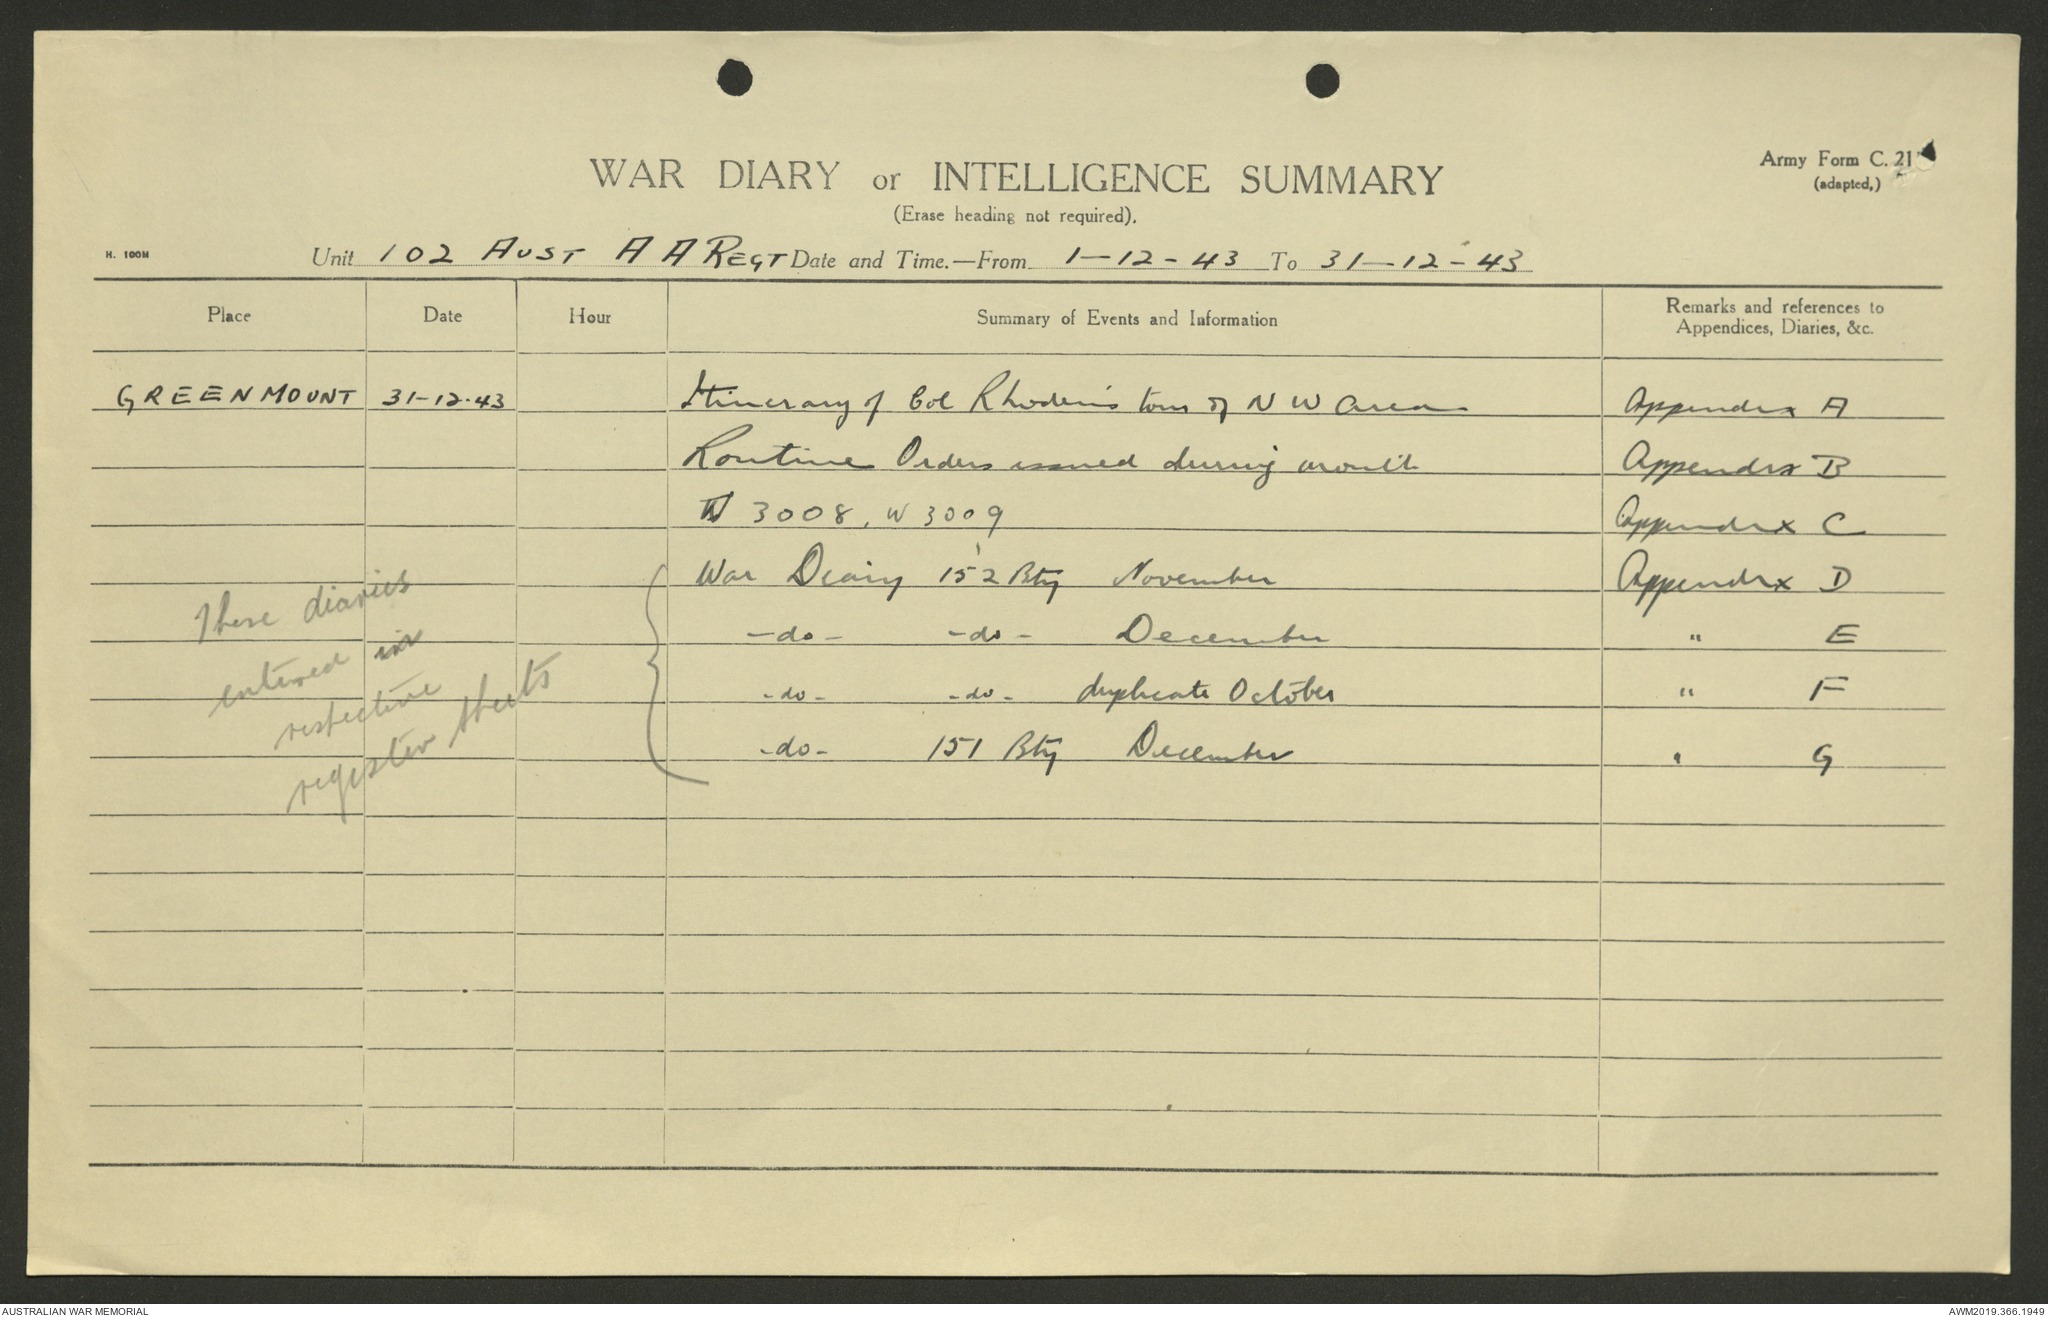 Army Form C. 21
(adapted.)
WAR DIARY or INTELLIGENCE SUMMARY
(Erase heading not required).
H. 100M
Unit 102 AUST A A REGT Date and Time.—From 1-12-43 To 31-12-43
Place Date Hour Summary of Events and Information Remarks and references to Appendices, Diaries, &c.
GREENMOUNT 31-12-43 Itinerary of Col Rhoden's tour of N W Area Appendix A
Routine Orders issued during month Appendix B
W 3008, W 3009 Appendix C
War Diary 152 Bty November Appendix D
-do- -do- December " E
-do- -do- duplicate October " F
-do- 151 Bty December " G
These diaries
entered in
respective
register sheets
AUSTRALIAN WAR MEMORIAL
AWM2019.366.1949